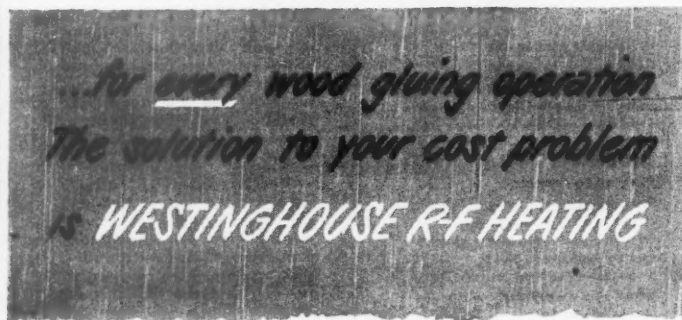 ...for every wood gluing operation
The solution to your cost problem
is WESTINGHOUSE R-F HEATING